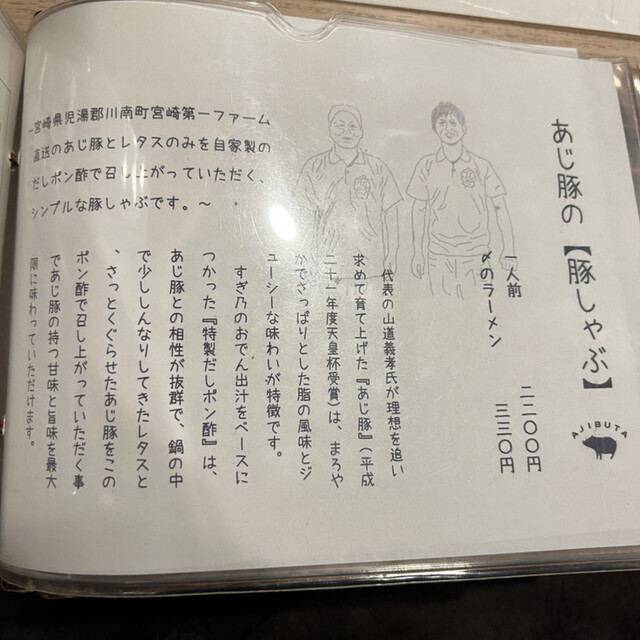 あじ豚の【豚しゃぶ】
AJIBUTA
一人前 二二〇〇円
〆のラーメン 三三〇円
~宮崎県児湯郡川南町宮崎第一ファーム
直送のあじ豚とレタスのみを自家製の
だしポン酢で召し上がっていただく、
シンプルな豚しゃぶです。~
代表の山道義孝氏が理想を追い
求めて育て上げた『あじ豚』(平成
二十一年度天皇杯受賞)は、まろや
かでさっぱりとした脂の風味とジ
ューシーな味わいが特徴です。
すぎ乃のおでん出汁をベースに
つかった『特製だしポン酢』は、
あじ豚との相性が抜群で、鍋の中
で少ししんなりしてきたレタスと
、さっとくぐらせたあじ豚をこの
ポン酢で召し上がっていただく事
であじ豚の持つ甘味と旨味を最大
限に味わっていただけます。